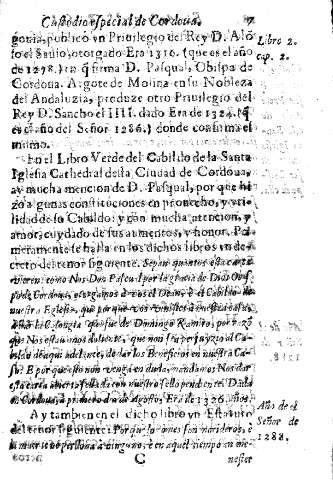 Custodio especial de Cordoua. 17
goria, publicò vn Priuilegio del Rey D. Alõ
so el Sauio, otorgado Era 1316. (que es el año
de 1278.) en q̃ firma D. Pasqual, Obispo de
Cordoua. Argote de Molina en su Nobleza
del Andaluzia, produze otro Priuilegio del
Rey D. Sancho el IIII. dado Era de 1324. (q̃
es el año del Señor 1286.) donde confirma el
mismo.
Libro 2.
cap. 2.
En el Libro Verde del Cabildo de la Santa
Iglesia Cathedral desta Ciudad de Cordoua,
ay mucha mencion de D. Pasqual, por que hi
zo algunas constituciones en prouecho, y vti-
lidad de su Cabildo: y con mucha atencion, y
amor, cuydado de sus aumentos, y honor. Pri
meramente se halla en los dichos libros vn de-
creto del tenor siguiente. Sepan quantos esta carta
vieren: como Nos Don Pascual por la gracia de Dio Obis
po de Cordoua, otorgamos à vos el Dean, è el Cabildo de
nuestra Eglesia, que porque vos
que fue de Domingo Ramiro, por
Nos
de aqui adelante, de dar los Beneficios en nuestra Ca-
E porque esto non venga en duda, mandamos
esta carta sellada con nuestro sello pendente. Dada
en Cordoua, primero dia de Agosto, Era de 1326. años.
Ay tambien en el dicho libro vn Estatuto
del tenor siguiente: Porque los omes son mortales, è
la muerte no perdona à ninguno, è en aquel tiempo en me-
Año de el
Señor de
1288.
C nester